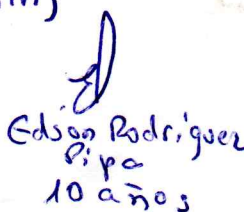 Edison Rodríguez
Pipa
10 años